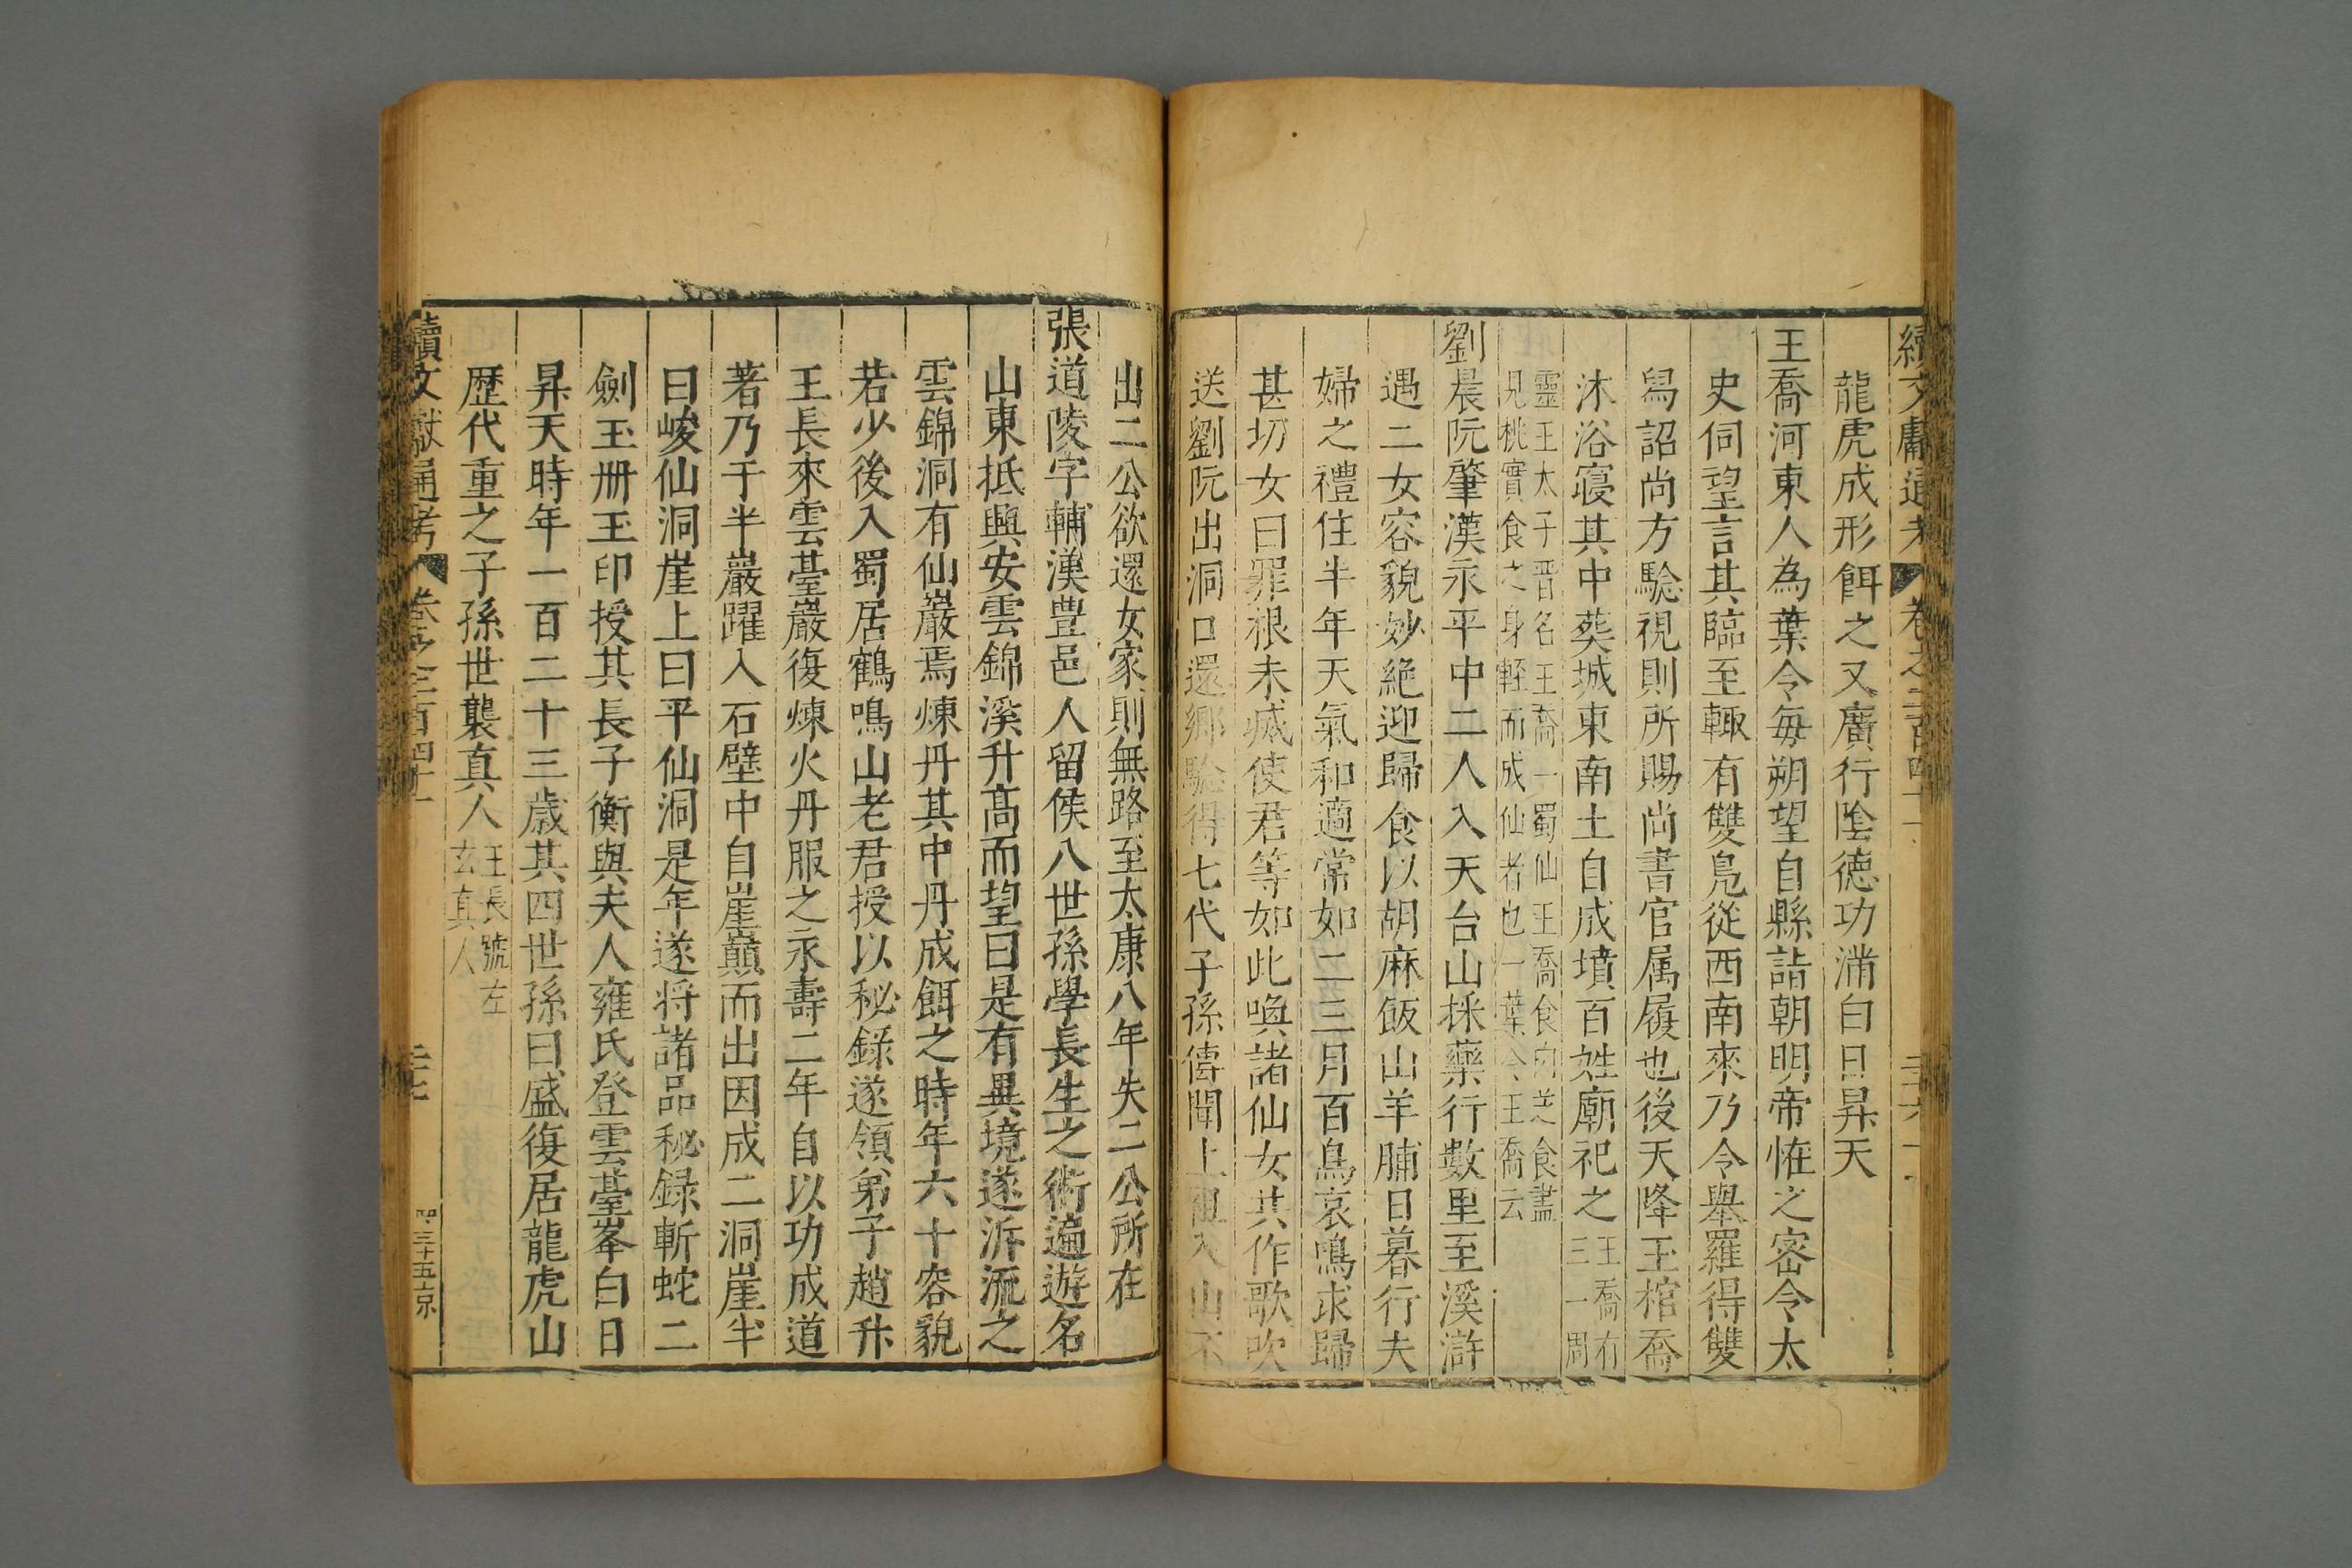 續文獻通考 卷之二百四十一 二十六
龍虎成形餌之又廣行陰德功滿白日昇天
王喬河東人為葉令毎朔望自縣詣朝明帝恠之密令太
史伺望言其臨至輙有雙鳬從西南來乃令舉羅得雙
舄詔尚方驗視則所賜尚書官属履也後天降玉棺喬
沐浴寝其中葬城東南土自成墳百姓廟祀之
王喬有
三一周
靈王太子晋名王喬一蜀仙王喬食肉芝食盖
見桃實食之身輕而成仙者也一葉令王喬云
劉晨阮肇漢永平中二人入天台山採藥行數里至溪滸
遇二女容貌妙絶迎歸食以胡麻飯山羊脯日暮行夫
婦之禮住半年天氣和適常如二三月百鳥哀鳴求歸
甚切女曰罪根未滅使君等如此喚諸仙女共作歌吹
送劉阮出洞口還鄉驗得七代子孫傳聞上祖入山不
出二公欲還女家則無路至太康八年失二公所在
張道陵字輔漢豊邑人留侯八世孫學長生之術遍遊名
山東抵興安雲錦溪升高而望曰是有異境遂泝流之
雲錦洞有仙巖焉煉丹其中丹成餌之時年六十容貌
若少後入蜀居鶴鳴山老君授以秘錄遂領弟子趙升
王長來雲臺巖復煉火丹服之永壽二年自以功成道
著乃于半巖躍入石壁中自崖巔而出因成二洞崖半
曰峻仙洞崖上曰平仙洞是年遂将諸品秘録斬蛇二
劍玉册玉印授其長子衡與夫人雍氏登雲臺峯白日
昇天時年一百二十三歲其四世孫曰盛復居龍虎山
歷代重之子孫世襲真人
王長號左
玄真人
續文獻通考 卷之二百四十一 二十七 三十五 京